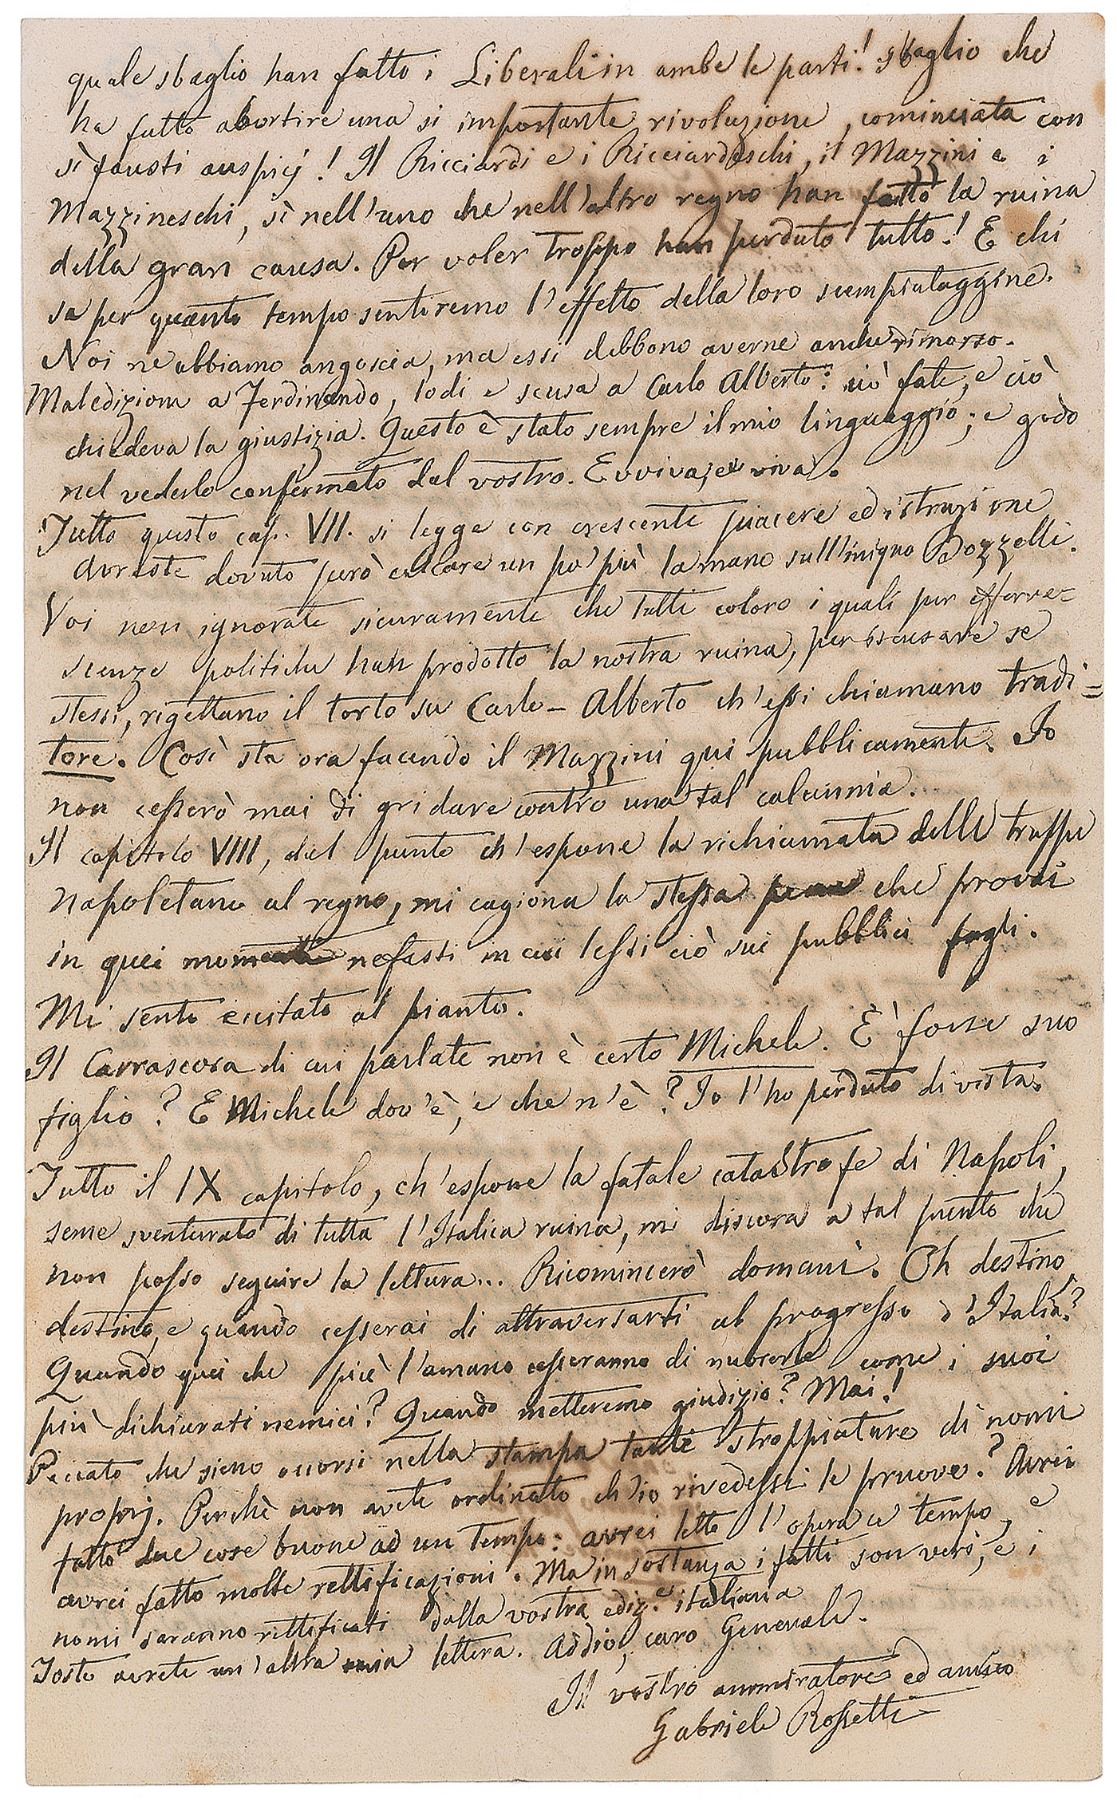 quale sbaglio han fatto i Liberali in ambe le parti! sbaglio che
ha fatto abortire una sì importante rivoluzione, cominciata con
sì fausti auspicj! Il Ricciardi e i Ricciardeschi, il Mazzini e i
Mazzineschi, sì nell'uno che nell'altro regno han fatto la ruina
della gran causa. Per voler troppo han perduto tutto! E chi
sa per quanto tempo sentiremo l'effetto della loro scempiataggine.
Noi ne abbiamo angoscia, ma essi debbono averne anche rimorso.
Maledizioni a Ferdinando, lodi e scusa a Carlo Alberto: ciò fate, e ciò
chiedeva la giustizia. Questo è stato sempre il mio linguaggio; e godo
nel vederlo confermato dal vostro. Evviva, evviva.
Tutto questo cap. VII. si legge con crescente piacere ed istruzione
Avreste dovuto però calcare un po' più la mano sull'insigne Bozzelli.
Voi non ignorate sicuramente che tutti coloro i quali per efferve-
scenze politiche han prodotto la nostra ruina, per iscusare se
stessi, rigettano il torto su Carlo-Alberto ch'essi chiamano tradi=
tore. Così sta ora facendo il Mazzini qui pubblicamente. Io
non cesserò mai di gridare contro una tal calunnia.
Il capitolo VIII, dal punto ch'espone la richiamata delle truppe
napoletane al regno, mi cagiona la stessa pena che provai
in quei momenti nefasti in cui lessi ciò sui pubblici fogli.
Mi sento eccitato al pianto.
Il Carrascosa di cui parlate non è certo Michele. È forse suo
figlio? E Michele dov'è, e che n'è? Io l'ho perduto di vista.
Tutto il IX capitolo, ch'espone la fatale catastrofe di Napoli,
seme sventurato di tutta l'Italica ruina, mi discora a tal punto che
non posso seguire la lettura... Ricomincerò domani. Oh destino,
destino, e quando cesserai di attraversarti al progresso d'Italia?
Quando quei che più l'amano cesseranno di nuocerle come i suoi
più dichiarati nemici? Quando metteremo giudizio? Mai!
Peccato che sieno occorsi nella stampa tante stroppiature di nomi
proprj. Perchè non avete ordinato ch'io rivedessi le pruove? Avrei
fatto due cose buone ad un tempo: avrei letto l'opera a tempo, e
avrei fatto molte rettificazioni. Ma in sostanza i fatti son veri, e i
nomi saranno rettificati dalla vostra ediz.e italiana
Tosto avrete un'altra mia lettera. Addio, caro Generale.
Il vostro ammiratore ed amico
Gabriele Rossetti